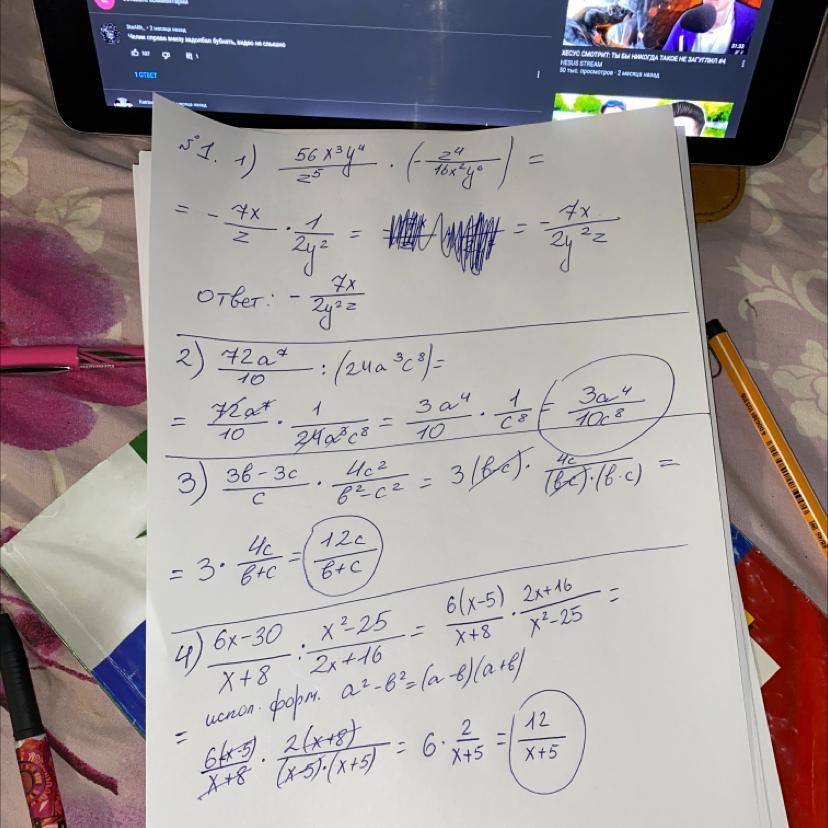 StaAlth_ • 2 месяца назад
Челик справа внизу задолбал бубнить, видео не слышно
107
1
1 ОТВЕТ
ХЕСУС СМОТРИТ: ТЫ БЫ НИКОГДА ТАКОЕ НЕ ЗАГУГЛИЛ #4
HESUS STREAM
50 тыс. просмотров • 2 месяца назад
21:33
№1. 1) 56x³y⁴/z⁵ · (-z⁴/16x²y⁶) =
= -7x/z · 1/2y² = = -7x/2y²z
Ответ: -7x/2y²z
2) 72a⁷/10 : (24a³c⁸) =
= 72a⁷/10 · 1/24a³c⁸ = 3a⁴/10 · 1/c⁸ = 3a⁴/10c⁸
3) 3в-3c/c · 4c²/в²-c² = 3(в-c) · 4c/(в-c)·(в-c) =
= 3 · 4c/в+c = 12c/в+c
4) 6x-30/x+8 : x²-25/2x+16 = 6(x-5)/x+8 · 2x+16/x²-25 =
= испол. форм. a²-в²=(a-в)(a+в)
6(x-5)/x+8 · 2(x+8)/(x-5)·(x+5) = 6 · 2/x+5 = 12/x+5